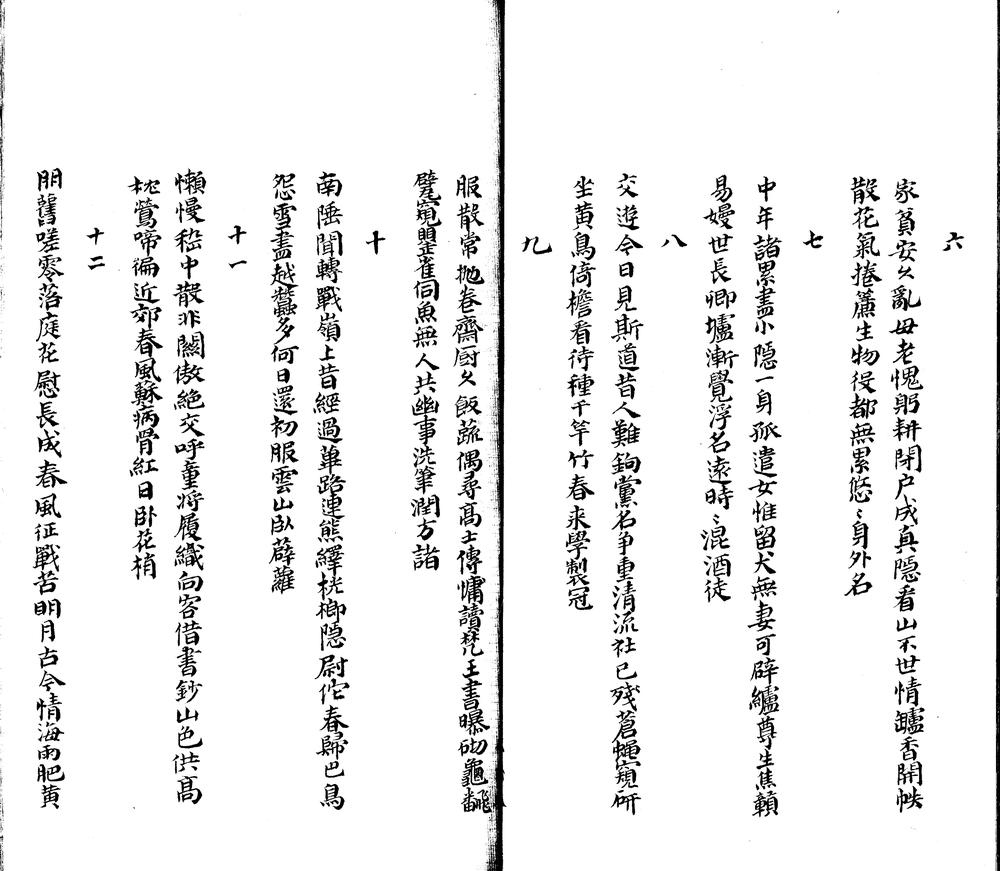 六
家貧安久亂母老愧躬耕閉户成真隠看山不世情罏香開帙
散花氣捲簾生物役都無累悠〻身外名
七
中年諸累盡小隠一身孤遣女惟留犬無妻可辟纑尊生焦穎
易嫚世長卿壚漸覺浮名遠時〻混酒徒
八
交遊今日見斯道昔人難鉤黨名争重清流社已殘蒼蝇窺研
坐黄鳥倚檐看待種千竿竹春来學製冠
九
服散常抛卷齋厨久飯蔬偶尋髙士傳慵讀梵王書曝砌龜
甓窺罌雀伺魚無人共幽事洗筆潤方諸
十
南陲聞轉戰嶺上昔經過蓽路連熊繹桄榔隠尉佗春歸巴鳥
怨雪盡越蠶多何日還初服雲山臥薜蘿
十一
懶慢嵇中散非關傲絶交呼童将履織向客借書鈔山色供髙
枕鶯啼徧近郊春風蘇病骨紅日卧花梢
十二
朋舊嗟零落庭花慰長成春風征戰苦明月古今情海雨肥黄